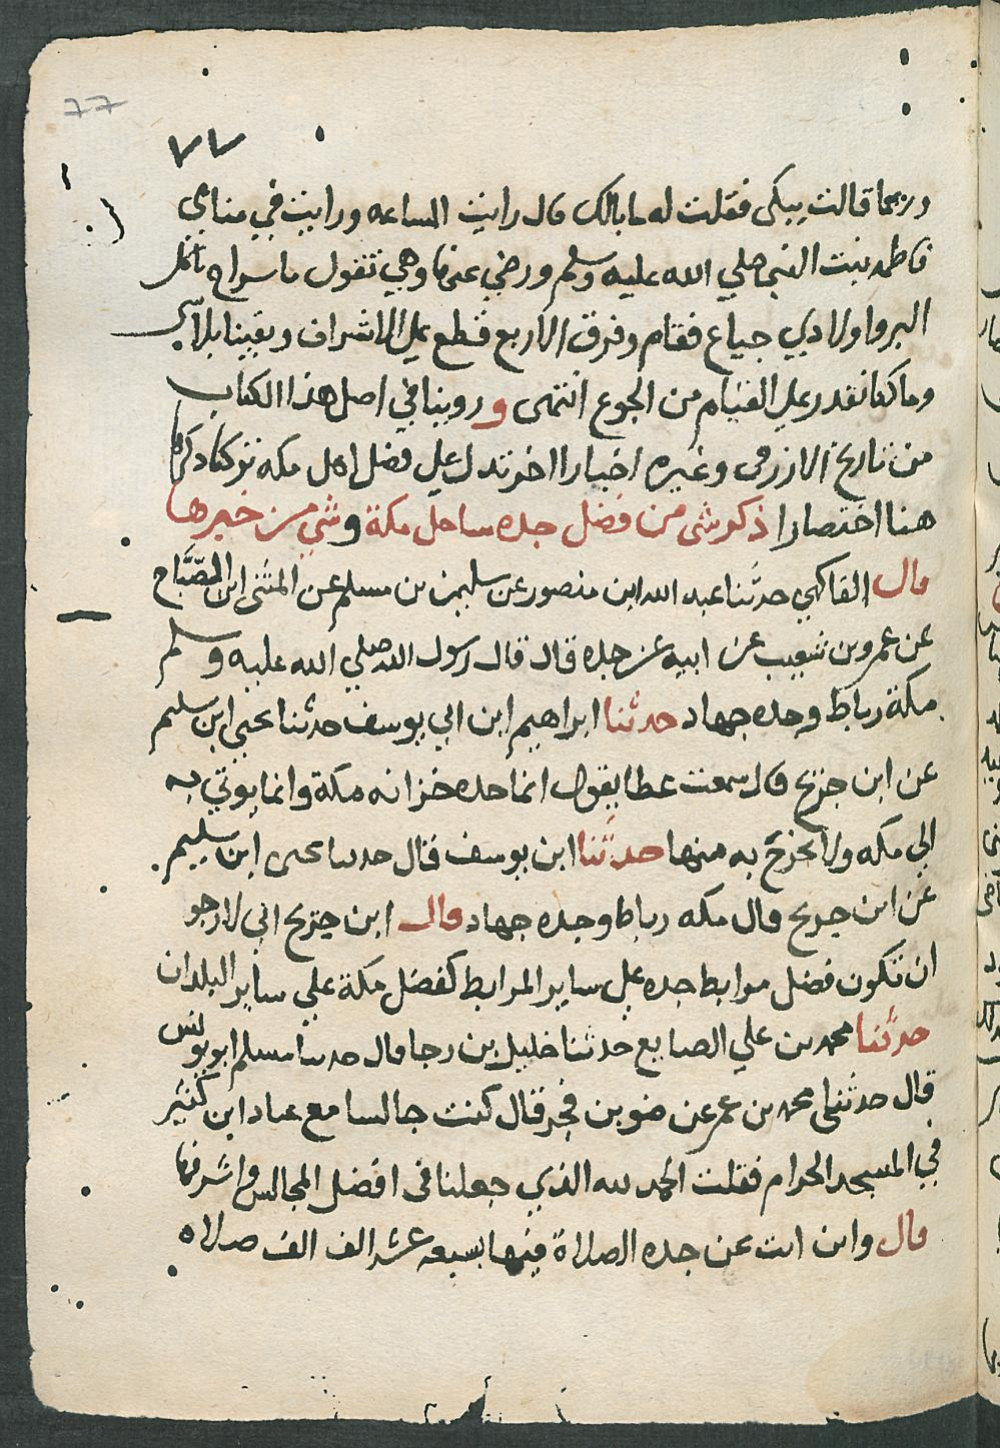 77
٧٧
وربما قالت يبكي فقلت له مابالك قال رايت الساعه ورايت في منامي
فاطمه بنت النبي صلي الله عليه وسلم ورضي عنها وهي تقول ياسراج تاكل
البر واولادي جياع فقام وفرق الاربع قطع علي الاشراف وبقينا بلا شي
وما كنا نقدر علي القيام من الجوع انتهى و روينا في اصل هذا الكتاب
من تاريخ الازرقي وغيره اخبارا اخر تدل علي فضل اهل مكه تركنا ذكرها
هنا اختصارا ذكر شي من فضل جده ساحل مكة وشي من خبرها
قال الفاكهي حدثنا عبد الله ابن منصور عن سليمن بن مسلم عن المثنى ابن الصبَّاح
عن عمرو بن شعيب عن ابيه عن جده قال قال رسول الله صلي الله عليه وسلم
مكة رباط وجده جهاد حدثنا ابراهيم ابن ابي يوسف حدثنا يحيى ابن سليم
عن ابن جريج قال سمعت عطا يقول انما جده خزانه مكة وانما يوتي به
الي مكه ولا يخرج به منها حدثنا ابن يوسف قال حدثنا يحيى ابن سليم
عن ابن جريج قال مكه رباط وجده جهاد قال ابن جريج اني لارجو
ان تكون فضل مرابط جده علي ساير المرابط كفضل مكة علي ساير البلدان
حدثنا محمد بن علي الصايغ حدثنا خليل بن رجا قال حدثنا مسلم ابو يونس
قال حدثني محمد بن عمر عن ضو بن فجر قال كنت جالسا مع عباد ابن كثير
في المسجد الحرام فقلت الحمد لله الذي جعلنا في افضل المجالس واشرفها
قال واين انت عن جده الصلاة فيها بسبعه عشر الف الف صلاه